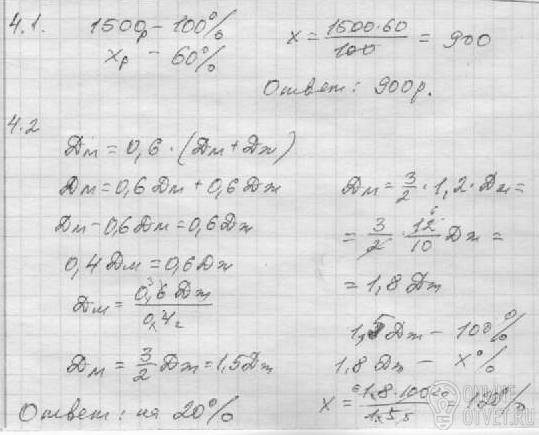 4.1.
1500р – 100%
xр – 60%
x = 1500·60/100 = 900
Ответ: 900р.
4.2
Дм = 0,6 · (Дм + Дж)
Дм = 0,6 Дм + 0,6 Дж
Дм – 0,6 Дм = 0,6 Дж
0,4 Дм = 0,6 Дж
Дм = 0,6 Дж/0,4
Дм = 3/2 Дж = 1,5 Дж
Ответ: на 20%
Дм = 3/2 · 1,2 · Дж =
= 3/2 · 12/10 Дж =
= 1,8 Дж
1,5 Дж – 100%
1,8 Дж – x%
x = 1,8·100/1,5 = 120%
ONLINE
OTVET.RU